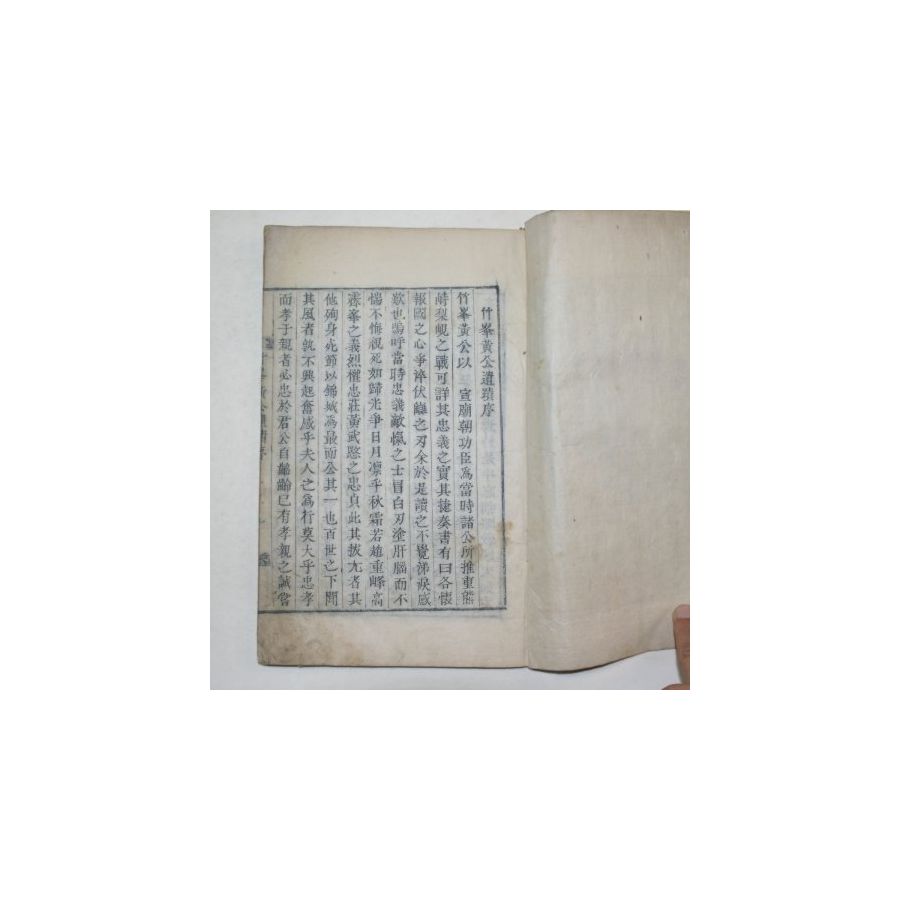 竹峯黃公遺蹟序
竹峯黃公以宣廟朝功臣為當時諸公所推重熊
峙梨峴之戰可詳其忠義之實其捷奏書有曰各懷
報國之心爭淬伏讎之刃余於是讀之不覺涕淚感
歎也嗚呼當時忠義敵愾之士冒白刃塗肝腦而不
惴不悔視死如歸光爭日月凛乎秋霜若趙重峰高
霽峯之義烈權忠莊黃武愍之忠貞此其拔尤者其
他殉身死節以錦城為最而公其一也百世之下聞
其風者孰不興起奮感乎夫人之為行莫大乎忠孝
而孝于親者必忠於君公自齠齡已有孝親之誠嘗